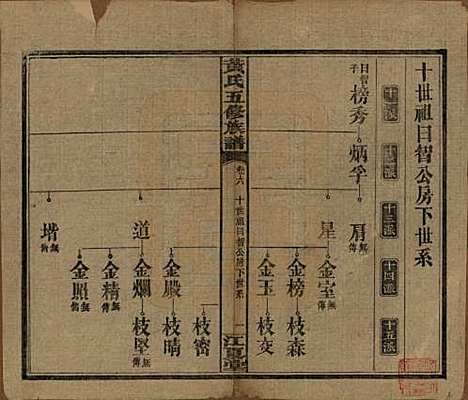 十世祖日智公房下世系
十一派
十二派
十三派
十四派
十五派
日智子
榜秀
炳孚
肩 無傳
星
金室 無傳
金榜
枝森
金玉
枝交
黃氏五修族譜
卷六
十世祖日智公房下世系
一
江夏堂
枝密
金殿
枝晴
道
金爛
枝堅 無傳
金精 無傳
金照 無傳
堦 無傳